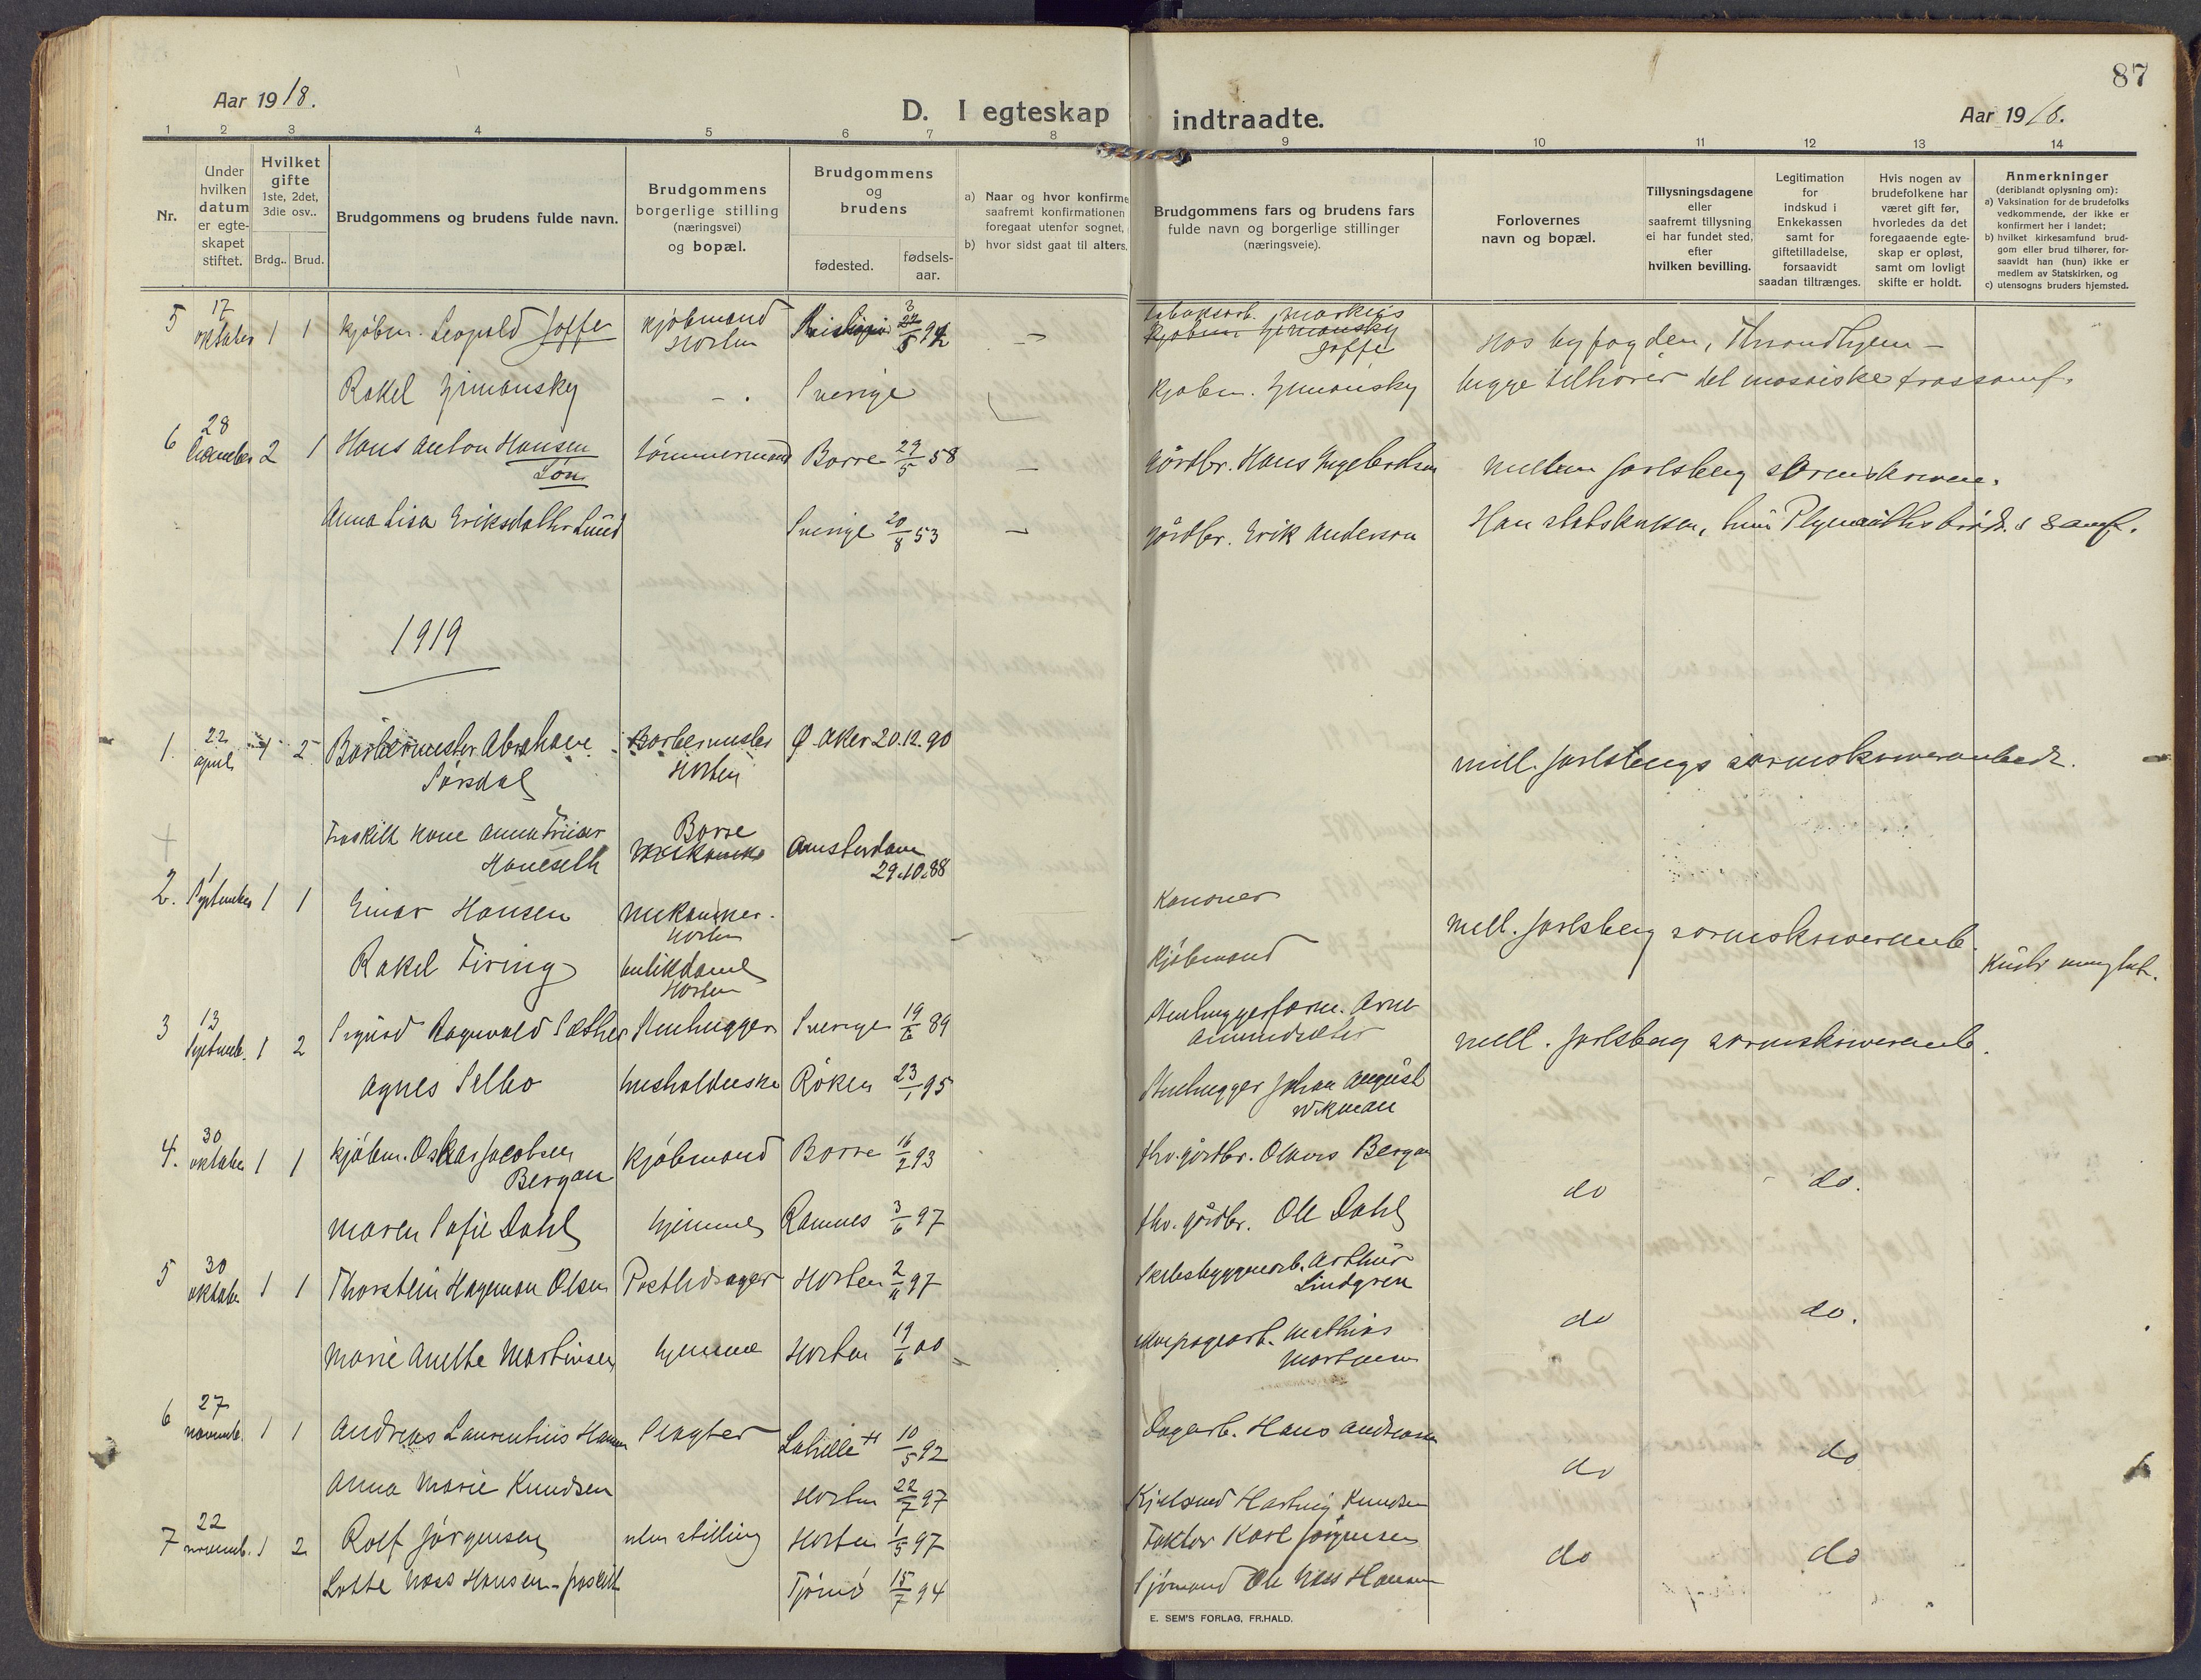 Aar 1918.
D. I egteskap indtraadte.
Aar 1918.
87
1 2 3 4 5 6 7 8 9 10 11 12 13 14
Nr.
Under hvilken datum er egteskapet stiftet.
Hvilket gifte 1ste, 2det, 3die osv..
Brdg.. Brud.
Brudgommens og brudens fulde navn.
Brudgommens borgerlige stilling (næringsvei) og bopæl.
Brudgommens og brudens
fødested.
fødsels-aar.
a) Naar og hvor konfirme
saafremt konfirmationen
foregaat utenfor sognet,
b) hvor sidst gaat til alters.
Brudgommens fars og brudens fars
fulde navn og borgerlige stillinger
(næringsveie).
Forlovernes
navn og bopæl.
Tillysningsdagene
eller
saafremt tillysning
ei har fundet sted,
efter
hvilken bevilling.
Legitimation
for
indskud i
Enkekassen
samt for
giftetilladelse,
forsaavidt
saadan tiltrænges.
Hvis nogen av
brudefolkene har
været gift før,
hvorledes da det
foregaaende egte-
skap er opløst,
samt om lovligt
skifte er holdt.
Anmerkninger
(deriblandt oplysning om):
a) Vaksination for de brudefolks
vedkommende, der ikke er
konfirmert her i landet;
b) hvilket kirkesamfund brud-
gom eller brud tilhører, for-
saavidt han (hun) ikke er
medlem av Statskirken, og
c) utensogns bruders hjemsted.
5 17 oktober 1 1 kjøbm. Leopold Joffe kjøbmand Horten Kristiania 94 Markus Joffe Hos byfogden, Throndhjem -
Rakel Jimansky - Sverige kjøbm. Jimansky begge tilhører det mosaiske trossamf.
6 28 December 2 1 Hans Anton Hansen Løn tømmermand Borre 29/5 58 - gårdbr. Hans Ingebretsen mellem Jarlsberg sorenskriveri.
Anna Lisa Eriksdatter Lund Sverige 20/8 53 - gårdbr. Erik Anderson Han statskirken, hun Plymouths brdr.s samf.
1919
1. 22 april 1 2 Barbermester Abraham Sørsdal Barbermester Horten Ø. Aker 20.12.90 mell. Jarlsbergs sorenskriverembede.
Fraskilt kone Anna Borre Amsterdam 29.10.88
2. 1 September 1 1 Einar Hansen mekaniker Horten Kanoner mell. Jarlsberg sorenskriveremb.
Rakel Firing butikdame Horten kjøbmand
3 13 Septemb. 1 2 Sigurd Ragnvald Sæther Stenhugger Sverige 19/6 89 Stenhuggerform. Arne Amundsæter mell. Jarlsberg sorenskriveremb.
Agnes Selbo husholderske Røken 23/1 95 Stenhugger Johan August Wikman
4. 30 oktober 1 1 kjøbm. Oskar Jacobsen Bergan kjøbmand Borre 16/2 93 fhv. gårdbr. Olaves Bergan do do.
Maren Sofie Dahl hjemme Ramnes 3/6 97 fhv. gårdbr. Ole Dahl
5 30 oktober 1 1 Thorstein Hageman Olsen Postbdrager Horten 2/11 97 Skibsbyggerarb. Arthur Lindgren do do.
Marie Anette Martinsen hjemme Horten 19/6 00 Mathias Martinsen
6 27 novemb. 1 1 Andreas Laurentius Hansen Slagter 10/5 92 Dagarb. Hans Andreasen do do
Anna Marie Knudsen Horten 22/7 97 Hartvig Knudsen
7 22 novemb. 1 2 Rolf Jørgensen uten stilling Horten 1/5 97 Faktor Karl Jørgensen do do
Lotte Næss Hansen - fraskilt Tjømø 15/7 94 Sjømand Ole Næss Hansen
E. SEM'S FORLAG, FR.HALD.